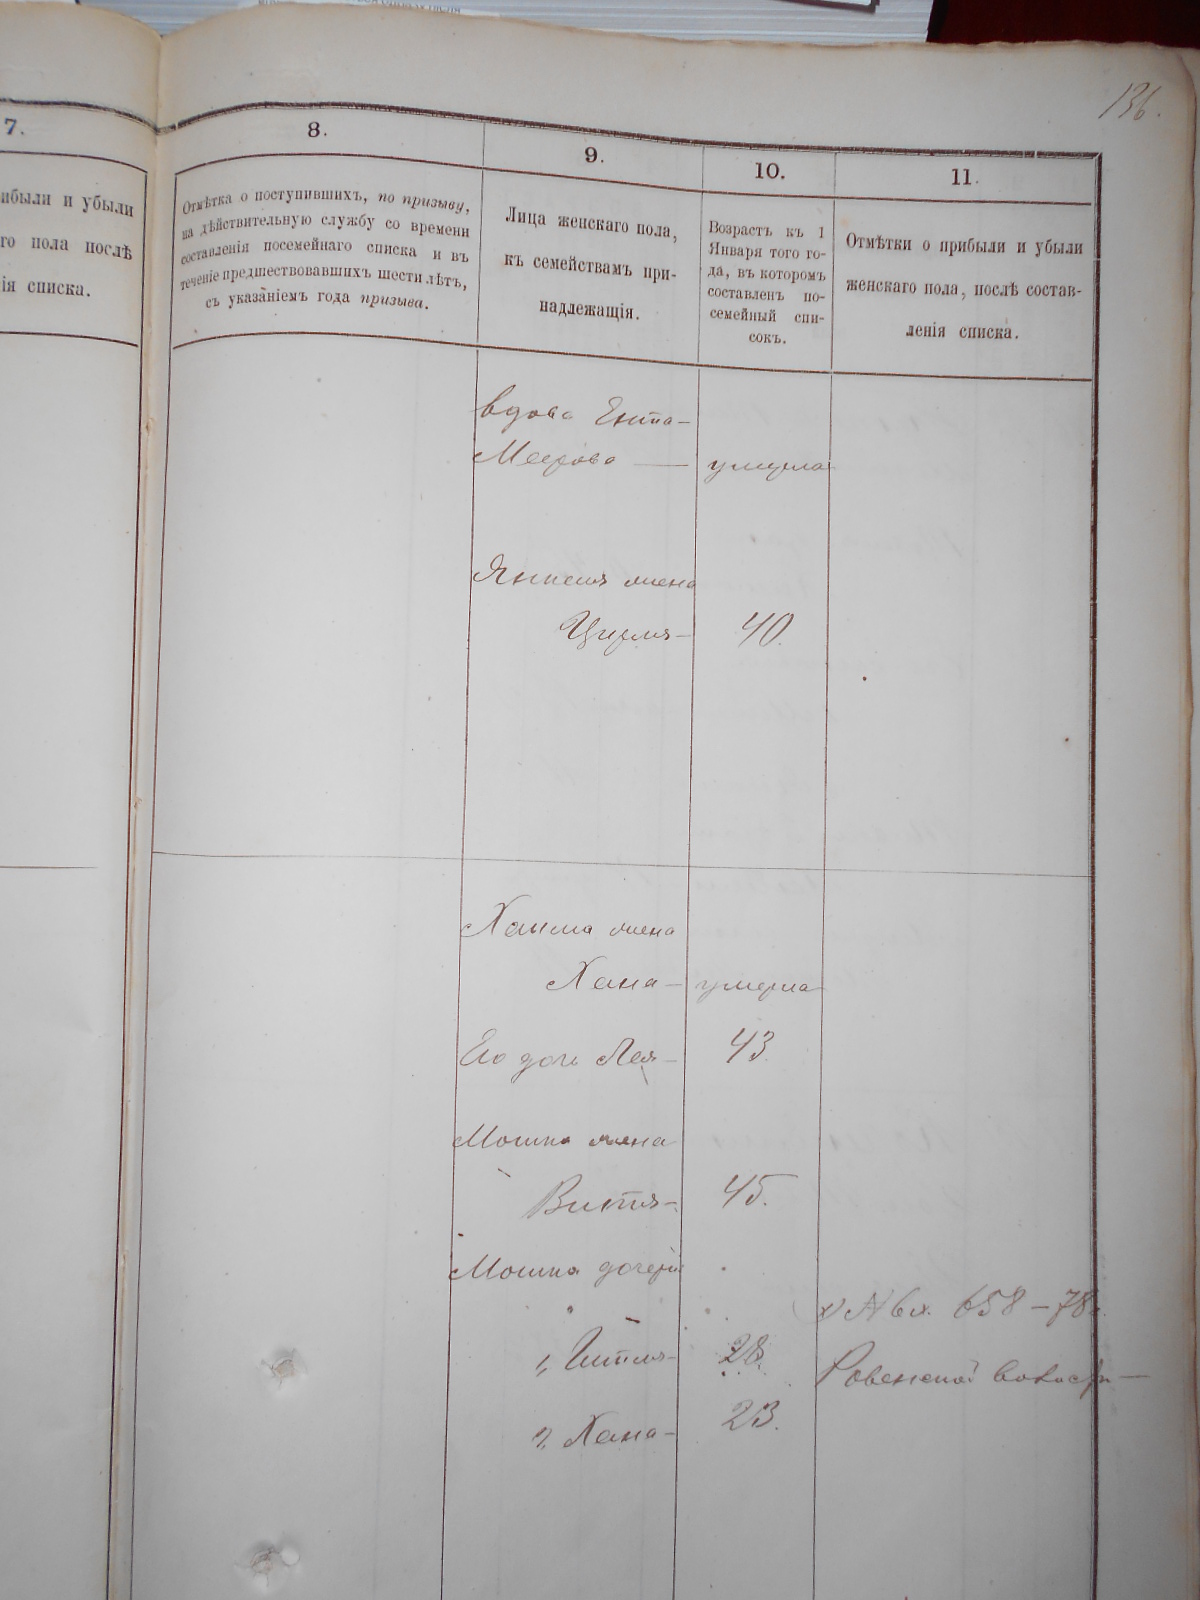 136.
7.
8.
9.
10.
11.
ибыли и убыли
го пола послѣ
ія списка.
Отмѣтка о поступившихъ, по призыву,
на дѣйствительную службу со времени
составленія посемейнаго списка и въ
теченіе предшествовавшихъ шести лѣтъ,
съ указаніемъ года призыва.
Лица женскаго пола,
къ семействамъ при-
надлежащія.
Возрастъ къ 1
Января того го-
да, въ которомъ
составленъ по-
семейный спи-
сокъ.
Отмѣтки о прибыли и убыли
женскаго пола, послѣ состав-
ленія списка.
вдова Ента-
Меерова — умерла
Янкеля жена
Цирля- 40.
Хаима жена
Хана- умерла
Его дочь Лея- 43
Мошка жена
45.
Мошка дочери
1, Гитля- 28.
2, Хана- 23.
658-78
Ровенской